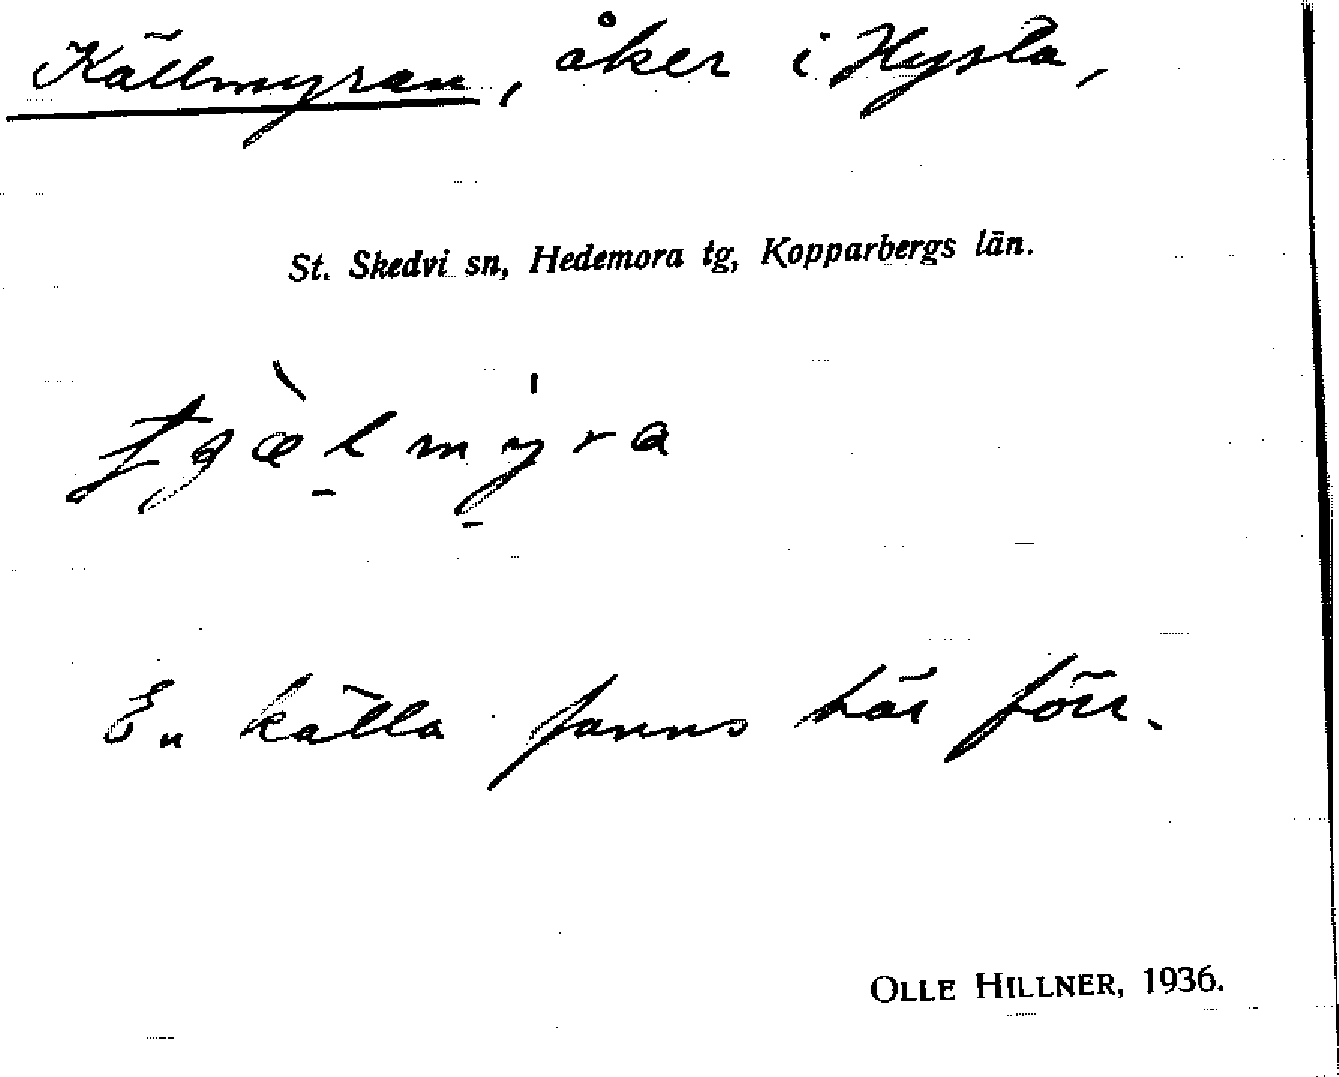 Källmyran, åker i Hysla,
St. Skedvi sn, Hedemora tg, Kopparbergs län.
En källa fanns här förr.
OLLE HILLNER, 1936.